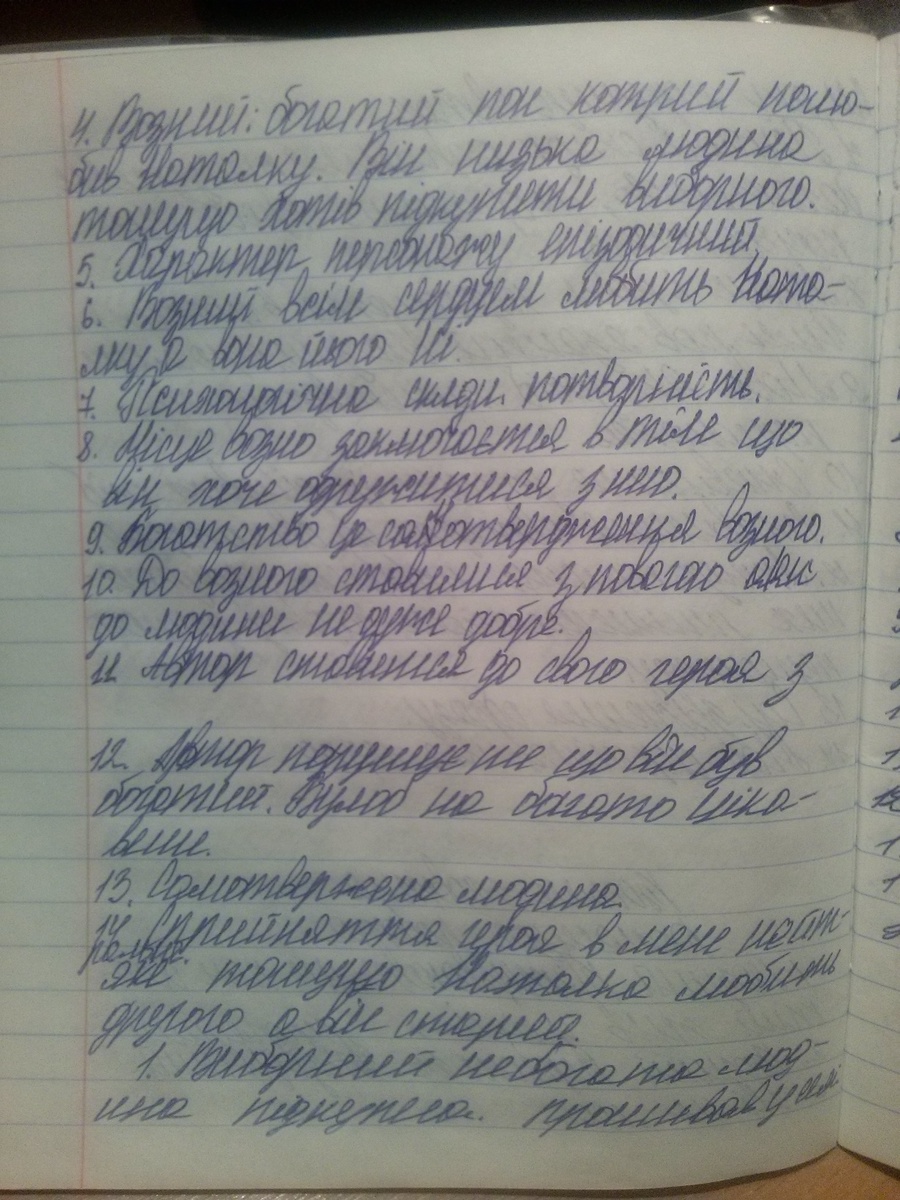 4. Возний: богатий пан котрий полю-
бив Наталку. Він низька людина
тощущо хотів підкупити виборного.
5. Характер персонажу епізодичний.
6. Возний всім серцем любить Ната-
лку а вона його ні.
7. Психологічна склад. потворність.
8. Місце возно заключается в тіле що
він хоче одружитися з нею.
9. Богатство це самотвердження возного.
10. До возного ставилися з повагою а як
до людини не дуже добре.
11. Автор ставится до свого героя з
12. Автор
що він був
богатий. Було б на багато ціка-
веше.
13. Самотвержена людина.
14. Сприйняття героя в мене нейт-
ральне
тощущо Наталка любить
другого а він старий.
1. Виборний небогата люд-
ина підкупна. Проживав у селі